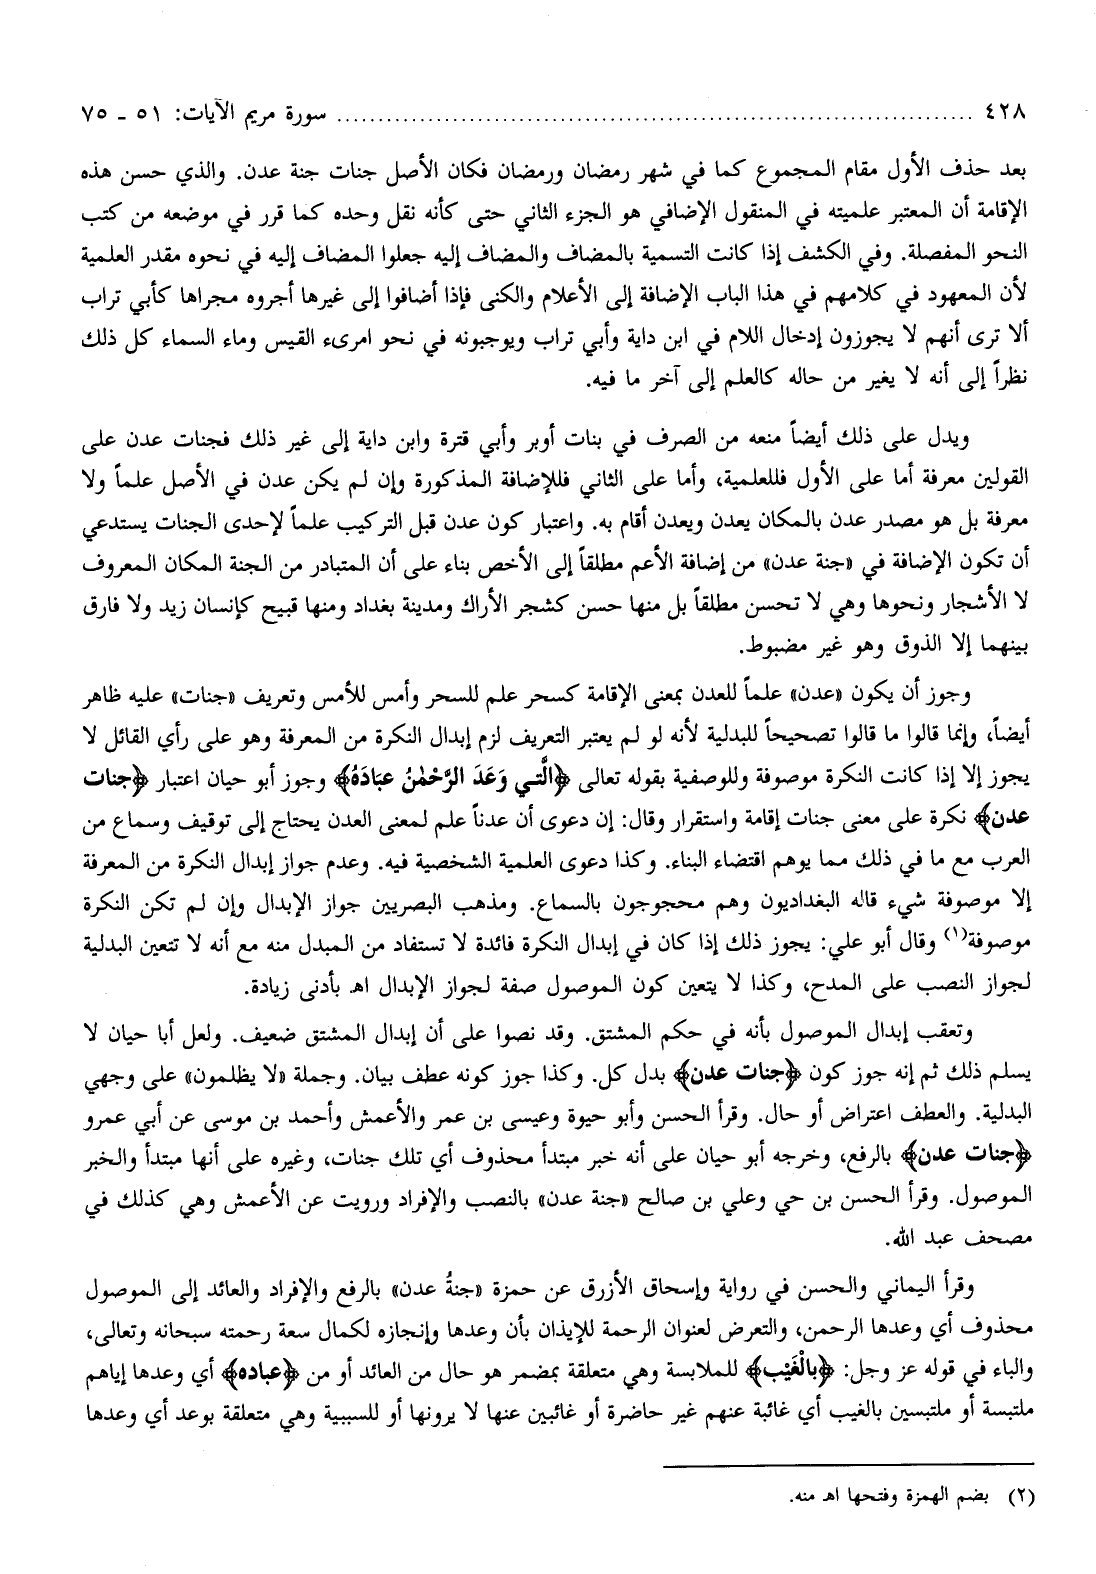 ٤٢٨ ........................................................ سورة مريم الآيات: ٥١ ـ ٧٥
بعد حذف الأول مقام المجموع كما في شهر رمضان ورمضان فكان الأصل جنات جنة عدن. والذي حسن هذه
الإقامة أن المعتبر علميته في المنقول الإضافي هو الجزء الثاني حتى كأنه نقل وحده كما قرر في موضعه من كتب
النحو المفصلة. وفي الكشف إذا كانت التسمية بالمضاف والمضاف إليه جعلوا المضاف إليه في نحوه مقدر العلمية
لأن المعهود في كلامهم في هذا الباب الإضافة إلى الأعلام والكنى فإذا أضافوا إلى غيرها أجروه مجراها كأبي تراب
ألا ترى أنهم لا يجوزون إدخال اللام في ابن داية وأبي تراب ويوجبونه في نحو امرىء القيس وماء السماء كل ذلك
نظراً إلى أنه لا يغير من حاله كالعلم إلى آخر ما فيه.
ويدل على ذلك أيضاً منعه من الصرف في بنات أوبر وأبي قترة وابن داية إلى غير ذلك فجنات عدن على
القولين معرفة أما على الأول فللعلمية، وأما على الثاني فللإضافة المذكورة وإن لم يكن عدن في الأصل علماً ولا
معرفة بل هو مصدر عدن بالمكان يعدن ويعدن أقام به. واعتبار كون عدن قبل التركيب علماً لإحدى الجنات يستدعي
أن تكون الإضافة في «جنة عدن» من إضافة الأعم مطلقاً إلى الأخص بناء على أن المتبادر من الجنة المكان المعروف
لا الأشجار ونحوها وهي لا تحسن مطلقاً بل منها حسن كشجر الأراك ومدينة بغداد ومنها قبيح كإنسان زيد ولا فارق
بينهما إلا الذوق وهو غير مضبوط.
وجوز أن يكون «عدن» علماً للعدن بمعنى الإقامة كسحر علم للسحر وأمس للأمس وتعريف «جنات» عليه ظاهر
أيضاً، وإنما قالوا ما قالوا تصحيحاً للبدلية لأنه لو لم يعتبر التعريف لزم إبدال النكرة من المعرفة وهو على رأي القائل لا
يجوز إلا إذا كانت النكرة موصوفة وللوصفية بقوله تعالى ﴿الَّتي وَعَدَ الرَّحْمٰنُ عبَادَهُ﴾ وجوز أبو حيان اعتبار ﴿جنات
عدن﴾ نكرة على معنى جنات إقامة واستقرار وقال: إن دعوى أن عدناً علم لمعنى العدن يحتاج إلى توقيف وسماع من
العرب مع ما في ذلك مما يوهم اقتضاء البناء. وكذا دعوى العلمية الشخصية فيه. وعدم جواز إبدال النكرة من المعرفة
إلا موصوفة شيء قاله البغداديون وهم محجوجون بالسماع. ومذهب البصريين جواز الإبدال وإن لم تكن النكرة
موصوفة(١) وقال أبو علي: يجوز ذلك إذا كان في إبدال النكرة فائدة لا تستفاد من المبدل منه مع أنه لا تتعين البدلية
لجواز النصب على المدح، وكذا لا يتعين كون الموصول صفة لجواز الإبدال اهـ بأدنى زيادة.
وتعقب إبدال الموصول بأنه في حكم المشتق. وقد نصوا على أن إبدال المشتق ضعيف. ولعل أبا حيان لا
يسلم ذلك ثم إنه جوز كون ﴿جنات عدن﴾ بدل كل. وكذا جوز كونه عطف بيان. وجملة «لا يظلمون» على وجهي
البدلية. والعطف اعتراض أو حال. وقرأ الحسن وأبو حيوة وعيسى بن عمر والأعمش وأحمد بن موسى عن أبي عمرو
﴿جنات عدن﴾ بالرفع، وخرجه أبو حيان على أنه خبر مبتدأ محذوف أي تلك جنات، وغيره على أنها مبتدأ والخبر
الموصول. وقرأ الحسن بن حي وعلي بن صالح «جنة عدن» بالنصب والإفراد ورويت عن الأعمش وهي كذلك في
مصحف عبد الله.
وقرأ اليماني والحسن في رواية وإسحاق الأزرق عن حمزة «جنةُ عدن» بالرفع والإفراد والعائد إلى الموصول
محذوف أي وعدها الرحمن، والتعرض لعنوان الرحمة للإيذان بأن وعدها وإنجازه لكمال سعة رحمته سبحانه وتعالى،
والباء في قوله عز وجل: ﴿بالْغَيْب﴾ للملابسة وهي متعلقة بمضمر هو حال من العائد أو من ﴿عباده﴾ أي وعدها إياهم
ملتبسة أو ملتبسين بالغيب أي غائبة عنهم غير حاضرة أو غائبين عنها لا يرونها أو للسببية وهي متعلقة بوعد أي وعدها
(٢) بضم الهمزة وفتحها اهـ منه.